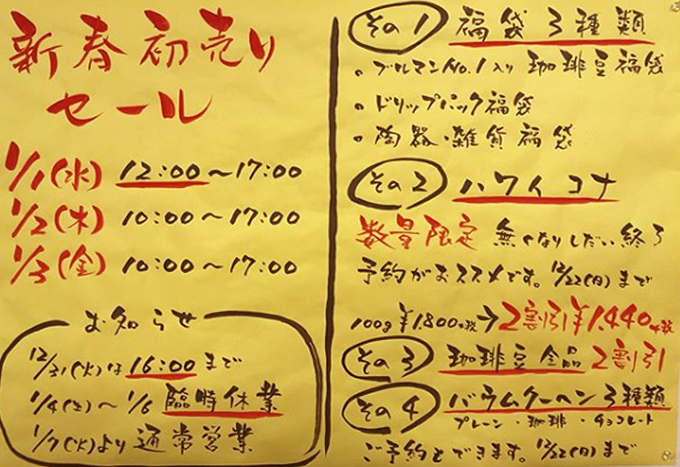 新春初売り
セール
1/1(水) 12:00〜17:00
1/2(木) 10:00〜17:00
1/3(金) 10:00〜17:00
お知らせ
12/31(火)は16:00まで
1/4(土)〜1/6 臨時休業
1/7(火)より通常営業
その1 福袋3種類
。ブルマンNo.1入り 珈琲豆福袋
。ドリップパック福袋
。陶器・雑貨福袋
その2 ハワイコナ
数量限定 無くなりしだい終了
予約がおススメです。12/22(日)まで
100g ¥1,800+税→2割引¥1,440+税
その3 珈琲豆全品2割引
その4 バウムクーヘン3種類
プレーン・珈琲・チョコレート
ご予約とできます。12/22(日)まで